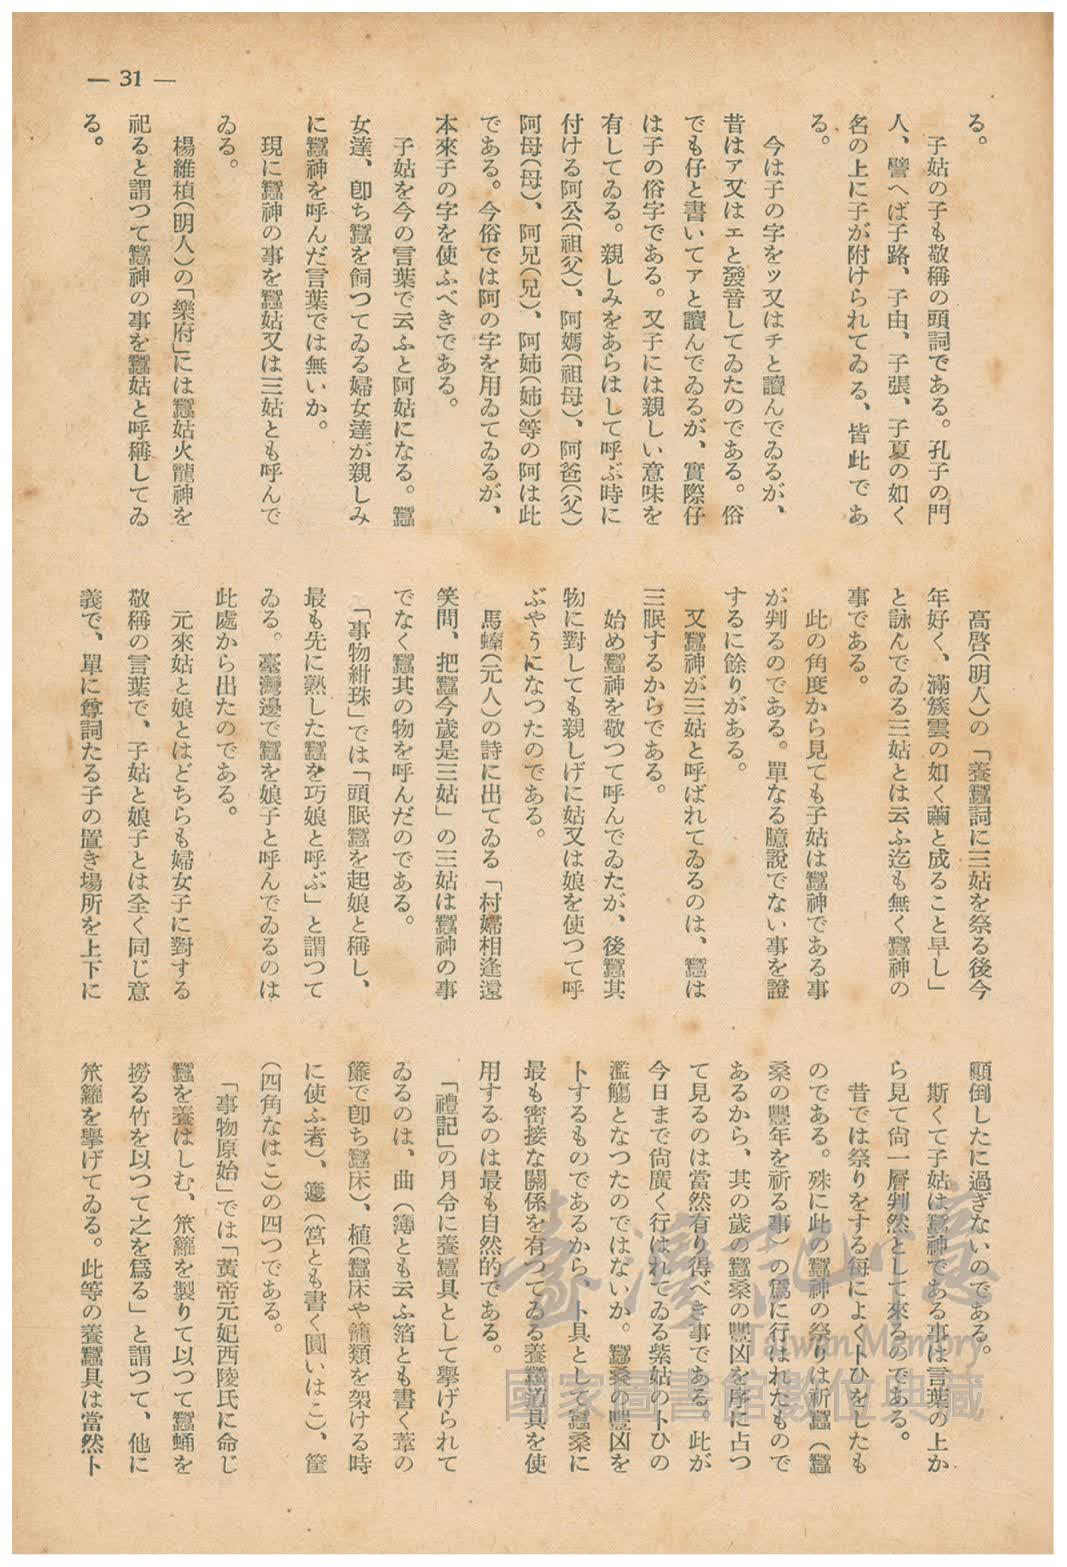 — 31 —
る。
子姑の子も敬稱の頭詞である。孔子の門
人、譬へば子路、子由、子張、子夏の如く
名の上に子が附けられてゐる、皆此であ
る。
今は子の字をッ又はチと讀んでゐるが、
昔はア又はェと發音してゐたのである。俗
でも仔と書いてァと讀んでゐるが、實際仔
は子の俗字である。又子には親しい意味を
有してゐる。親しみをあらはして呼ぶ時に
付ける阿公(祖父)、阿媽(祖母)、阿爸(父)
阿母(母)、阿兄(兄)、阿姉(姉)等の阿は此
である。今俗では阿の字を用ゐてゐるが、
本來子の字を使ふべきである。
子姑を今の言葉で云ふと阿姑になる。蠶
女達、卽ち蠶を飼つてゐる婦女達が親しみ
に蠶神を呼んだ言葉では無いか。
現に蠶神の事を蠶姑又は三姑とも呼んで
ゐる。
楊維楨(明人)の「樂府」には蠶姑火龍神を
祀ると謂つて蠶神の事を蠶姑と呼稱してゐ
る。
高啓(明人)の「養蠶詞に三姑を祭る後今
年好く、滿簇雲の如く繭と成ること早し」
と詠んでゐる三姑とは云ふ迄も無く蠶神の
事である。
此の角度から見ても子姑は蠶神である事
が判るのである。單なる臆說でない事を證
するに餘りがある。
又蠶神が三姑と呼ばれてゐるのは、蠶は
三眠するからである。
始め蠶神を敬つて呼んでゐたが、後蠶其
物に對しても親しげに姑又は娘を使つて呼
ぶやうになつたのである。
馬蓁(元人)の詩に出てゐる「村婦相逢還
笑問、把蠶今歲是三姑」の三姑は蠶神の事
でなく蠶其の物を呼んだのである。
「事物紺珠」では「頭眠蠶を起娘と稱し、
最も先に熟した蠶を巧娘と呼ぶ」と謂つて
ゐる。臺灣邊で蠶を娘子と呼んでゐるのは
此處から出たのである。
元來姑と娘とはどちらも婦女子に對する
敬稱の言葉で、子姑と娘子とは全く同じ意
義で、單に尊詞たる子の置き場所を上下に
顚倒したに過ぎないのである。
斯くて子姑は蠶神である事は言葉の上か
ら見て尙一層判然として來るのである。
昔では祭りをする每によく卜ひをしたも
のである。殊に此の蠶神の祭りは祈蠶(蠶
桑の豐年を祈る事)の爲に行はれたもので
あるから、其の歲の蠶桑の豐凶を序に占つ
て見るのは當然有り得べき事である。此が
今日まで尙廣く行はれてゐる紫姑の卜ひの
濫觴となつたのではないか。蠶桑の豐凶を
卜するものであるから、卜具として蠶桑に
最も密接な關係を有つてゐる養蠶道具を使
用するのは最も自然的である。
「禮記」の月令に養蠶具として擧げられて
ゐるのは、曲(簿とも云ふ箔とも書く葦の
簾で卽ち蠶床)、植(蠶床や籠類を架ける時
に使ふ者)、籧(筥とも書く圓いはこ)、筐
(四角なはこ)の四つである。
「事物原始」では「黃帝元妃西陵氏に命じ
蠶を養はしむ、笊籮を製りて以つて蠶蛹を
撈る竹を以つて之を爲る」と謂つて、他に
笊籮を擧げてゐる。此等の養蠶具は當然卜
臺灣記憶
Taiwan Memory
國家圖書館數位典藏